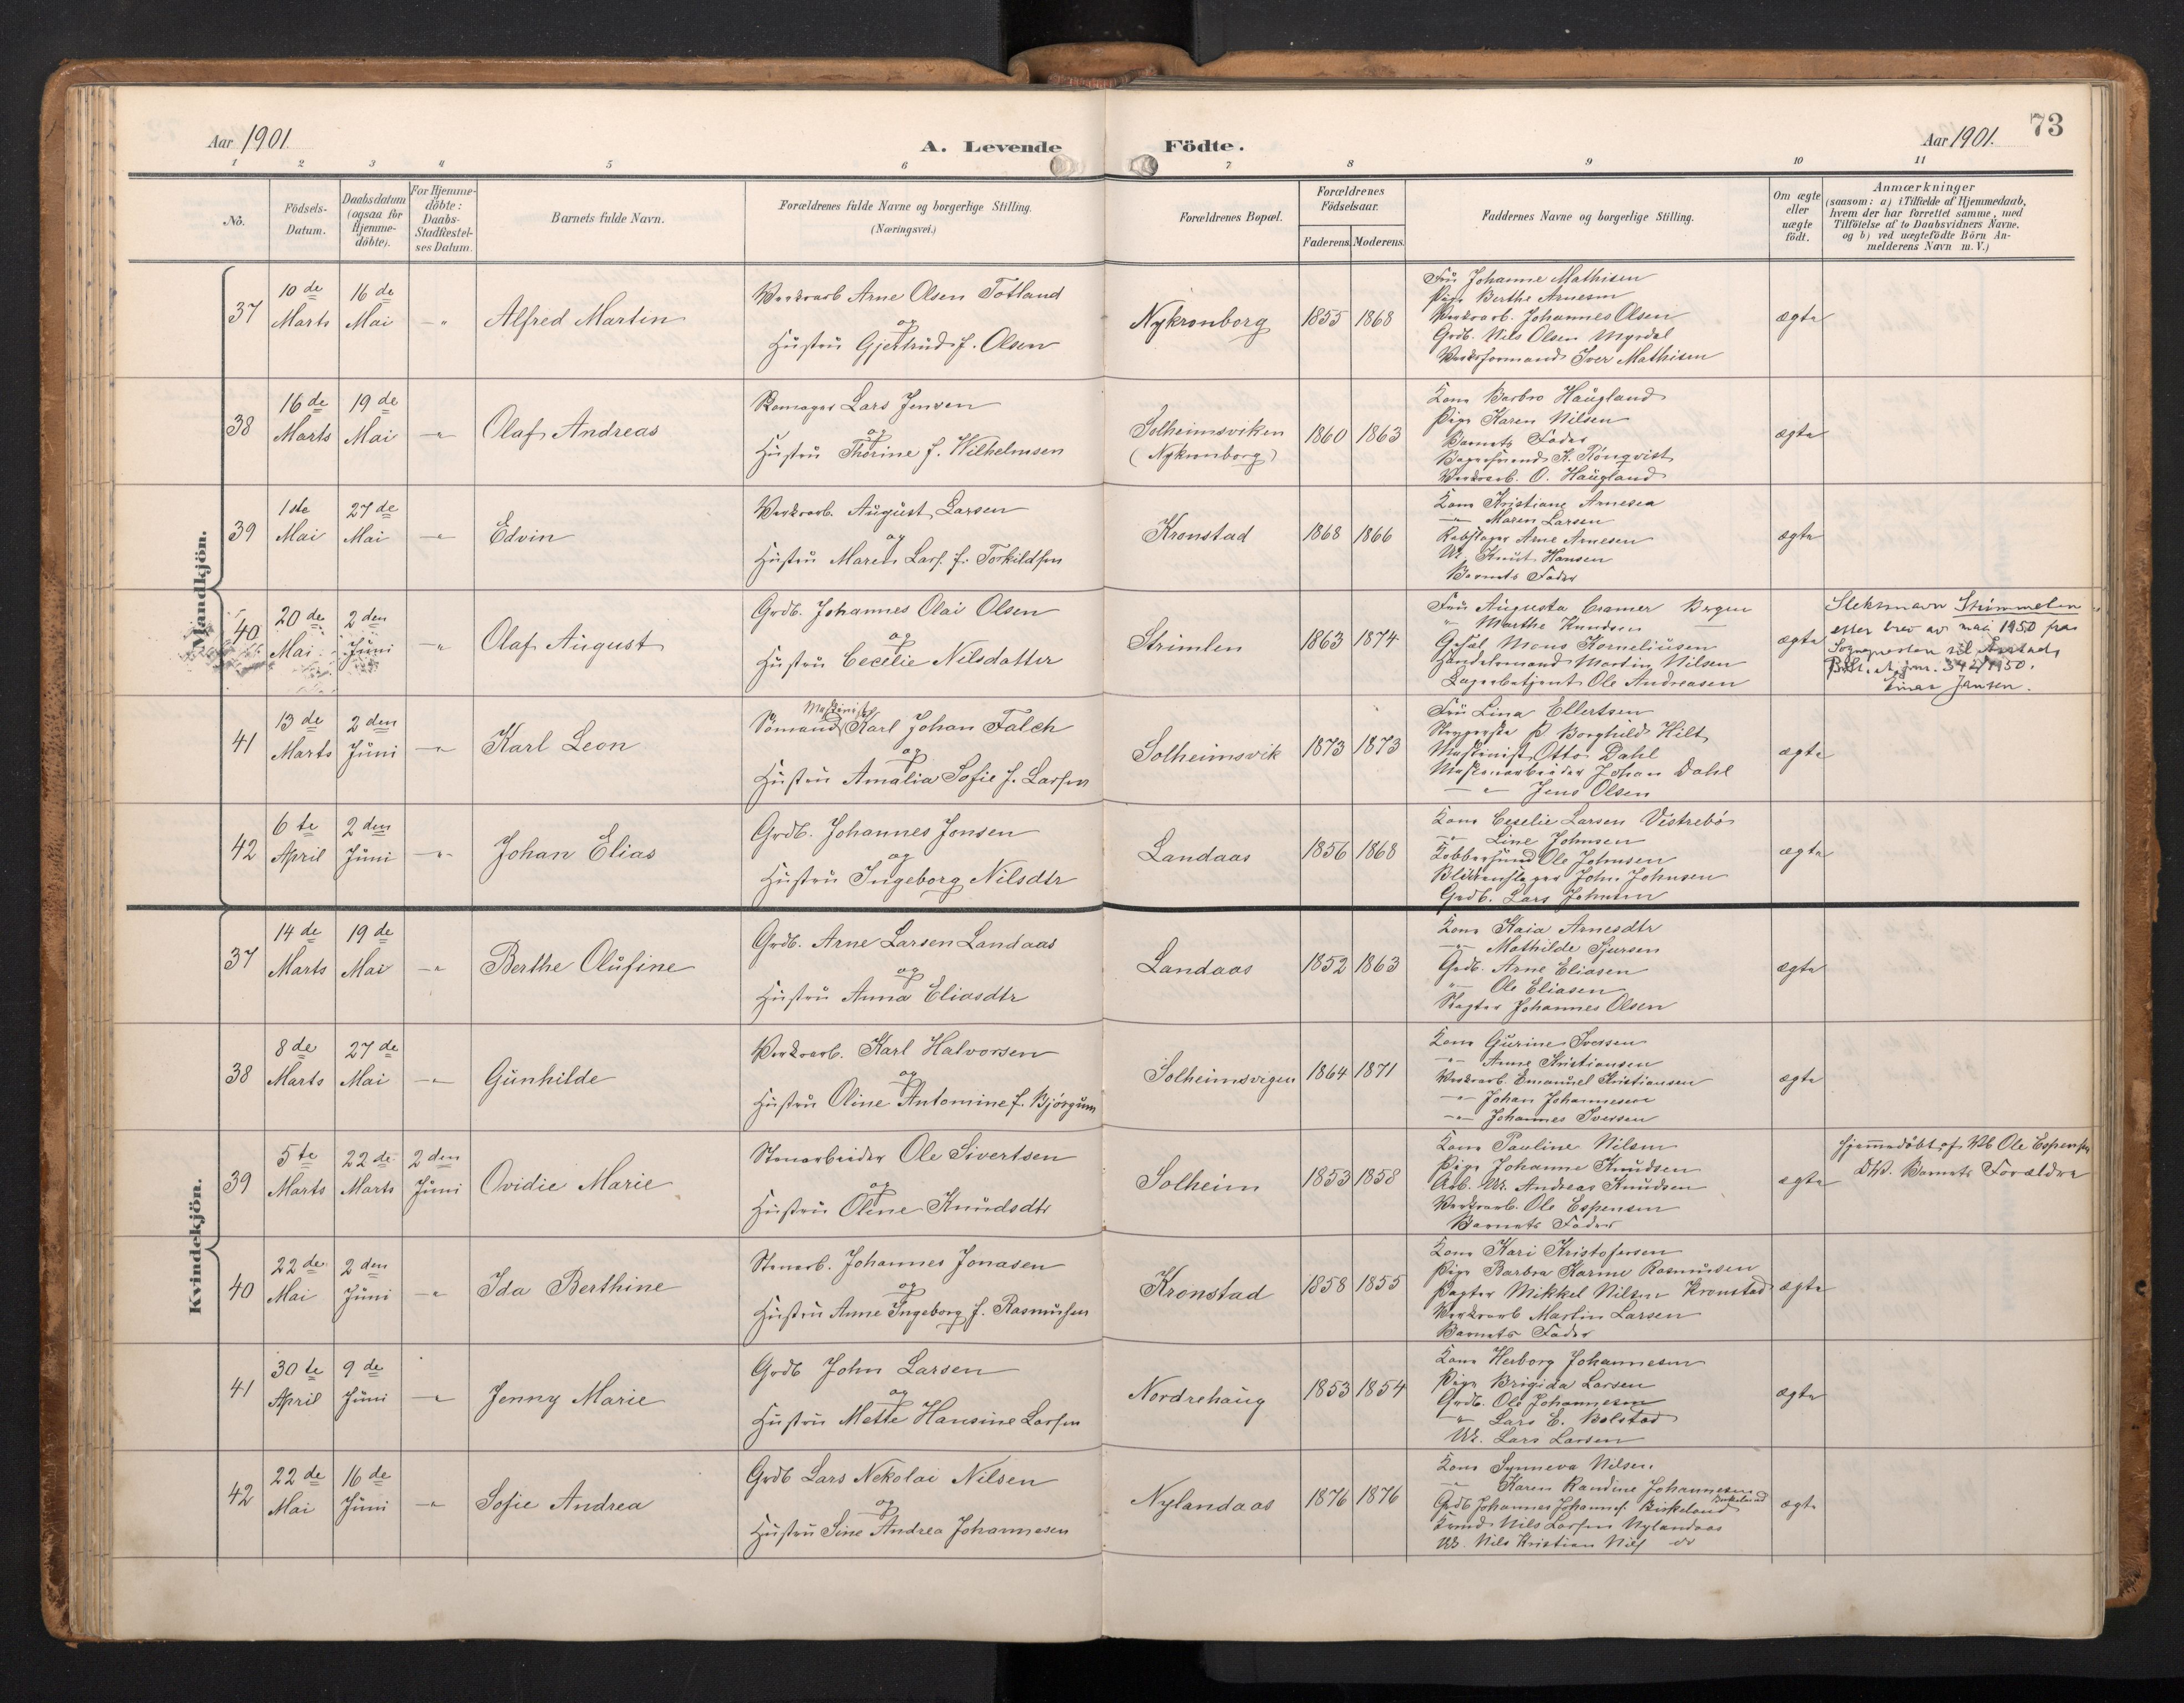 Aar 1901.
A. Levende Födte.
Aar 1901.
73
1 2 3 4 5 6 7 8 9 10 11
Nô.
Födsels-Datum.
Daabsdatum (ogsaa for Hjemme-döbte).
For Hjemme-döbte: Daabs-Stadfæstel-ses Datum.
Barnets fulde Navn.
Forældrenes fulde Navne og borgerlige Stilling. (Næringsvei.)
Forældrenes Bopæl.
Forældrenes Födselsaar.
Faderens. Moderens.
Faddernes Navne og borgerlige Stilling.
Om ægte eller uægte födt.
Anmærkninger
(saasom: a) i Tilfælde af Hjemmedaab, hvem der har forrettet samme, med Tilföielse af to Daabsvidners Navne, og b) ved uægtefödte Börn Anmelderens Navn m. V.)
Mandkjön.
37 10de Marts 16de Mai -"- Alfred Martin
Verksarb Arne Olsen Totland
og
Hustru Gjertrud f. Olsen
Nykronborg 1855 1868
Fru Johanne Mathisen
Pige Berthe Arnesen
Verksarb. Johannes Olsen
Grdb. Nils Olsen Myrdal
Verksformand Iver Mathisen
ægte
38 16de Marts 19de Mai -"- Olaf Andreas
Lars Jensen
og
Hustru Thorine f. Wilhelmsen
Solheimsviken
(Nykronborg)
1860 1863
Kone Barbro Haugland
Pige Karen Nilsen
Barnets Fader
K. Rönqvist
Verksarb. O. Haugland
ægte
39 1ste Mai 27de Mai -"- Edvin
Verksarb. August Larsen
og
Hustru Maren Lars. f. Torkildsen
Kronstad 1868 1866
Kone Kristiane Arnesen
-"- Maren Larsen
Rebslager Arne Arnesen
Uk. Knut Hansen
Barnets Fader
ægte
40 20de Mai 2den Juni -"- Olaf August
Grdb. Johannes Olai Olsen
og
Hustru Cecilie Nilsdatter
Strimlen 1863 1874
Fru Augusta Cramer Bergen
" Marthe Knudsen
Mons Korneliusen
Handelsmand Martin Nilsen
Lagerbetjent Ole Andreasen
ægte
Slektsnavn Strimmelen
etter brev av mai 1950 fra
Sognepresten til Årstad,
jnr. 342/1950.
Einar Jansen.
41 13de Marts 2den Juni -"- Karl Leon
Maskinist
Sömand Karl Johan Falch
og
Hustru Amalia Sofie f. Larsen
Solheimsvik 1873 1873
Fru Lina Ellertsen
Borghild Hilt
Maskinist Otto Dahl
Maskinarbeider Johan Dahl
-"- Jens Olsen
ægte
42 6te April 2den Juni -"- Johan Elias
Grdb. Johannes Jonsen
og
Hustru Ingeborg Nilsdtr
Landaas 1856 1868
Kone Ceselie Larsen Vestrebö
-"- Line Johnsen
Kobbersmed Ole Johnsen
Blikkenslager John Johnsen
Grdb. Lars Johnsen
ægte
Kvindekjön.
37 14de Marts 19de Mai -"- Berthe Olufine
Grdb. Arne Larsen Landaas
og
Hustru Anna Eliasdtr
Landaas 1852 1863
Kone Kaia Arnesdtr
-"- Mathilde Sjursen
Grdb. Arne Eliasen
-"- Ole Eliasen
Slagter Johannes Olsen
ægte
38 8de Marts 27de Mai -"- Gunhilde
Verksarb. Karl Halvorsen
og
Hustru Oline Antomine f. Bjørgum
Solheimsvigen 1864 1871
Kone Gurine Iversen
-"- Anne Kristiansen
Verksarb. Emanuel Kristiansen
-"- Johan Johannesen
-"- Johannes Iversen
ægte
39 5te Marts 22de Marts 2den Juni Ovidie Marie
Stenarbeider Ole Sivertsen
og
Hustru Oline Knudsdtr
Solheim 1853 1858
Kone Pauline Nilsen
Pige Johanne Knudsen
Arb. Uk. Andreas Knudsen
Verksarb. Ole Espensen
Barnets Fader
ægte
Hjemmedöbt af Vb Ole Espensen
DV. Barnets Forældre
40 22de Mai 2den Juni -"- Ida Berthine
Stenarb. Johannes Jonasen
og
Hustru Anne Ingeborg f. Rasmusen
Kronstad 1858 1855
Kone Kari Kristofersen
Pige Barbra Karine Rasmusen
Pagter Mikkel Nilsen Kronstad
Verksarb Martin Larsen
Barnets Fader
ægte
41 30te April 9de Juni -"- Jenny Marie
Grdb John Larsen
og
Hustru Mette Hansine Larsen
Nordrehaug 1853 1854
Kone Herborg Johannesen
Pige Brigida Larsen
Grdb. Ole Johannesen
-"- Lars E. Bolstad
Uk. Lars Larsen
ægte
42 22de Mai 16de Juni -"- Sofie Andrea
Grdb Lars Nekolai Nilsen
og
Hustru Sine Andrea Johannesen
Nylandaas 1876 1876
Kone Synneva Nilsen
-"- Karen Randine Johannesen Birkeland
Grdb Johannes Johannes. Birkeland
Nils Larsen Nylandaas
Uk. Nils Kristian Nils. do
ægte